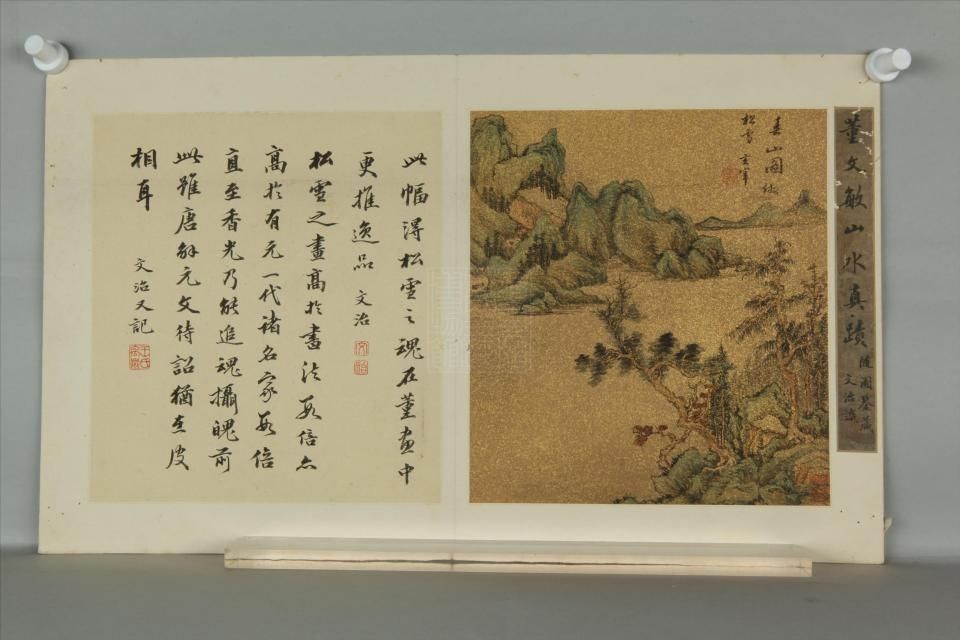 董文敏山水真蹟
隨園鑒藏
文治題
春山圖倣
松雪 玄宰
此幅得松雪之魂在董畫中
更推逸品 文治
松雪之畫高於書法數倍亦
高於有元一代諸名家數倍
直至香光乃能追魂攝魄前
此雖唐解元文待詔猶在皮
相耳
文治又記